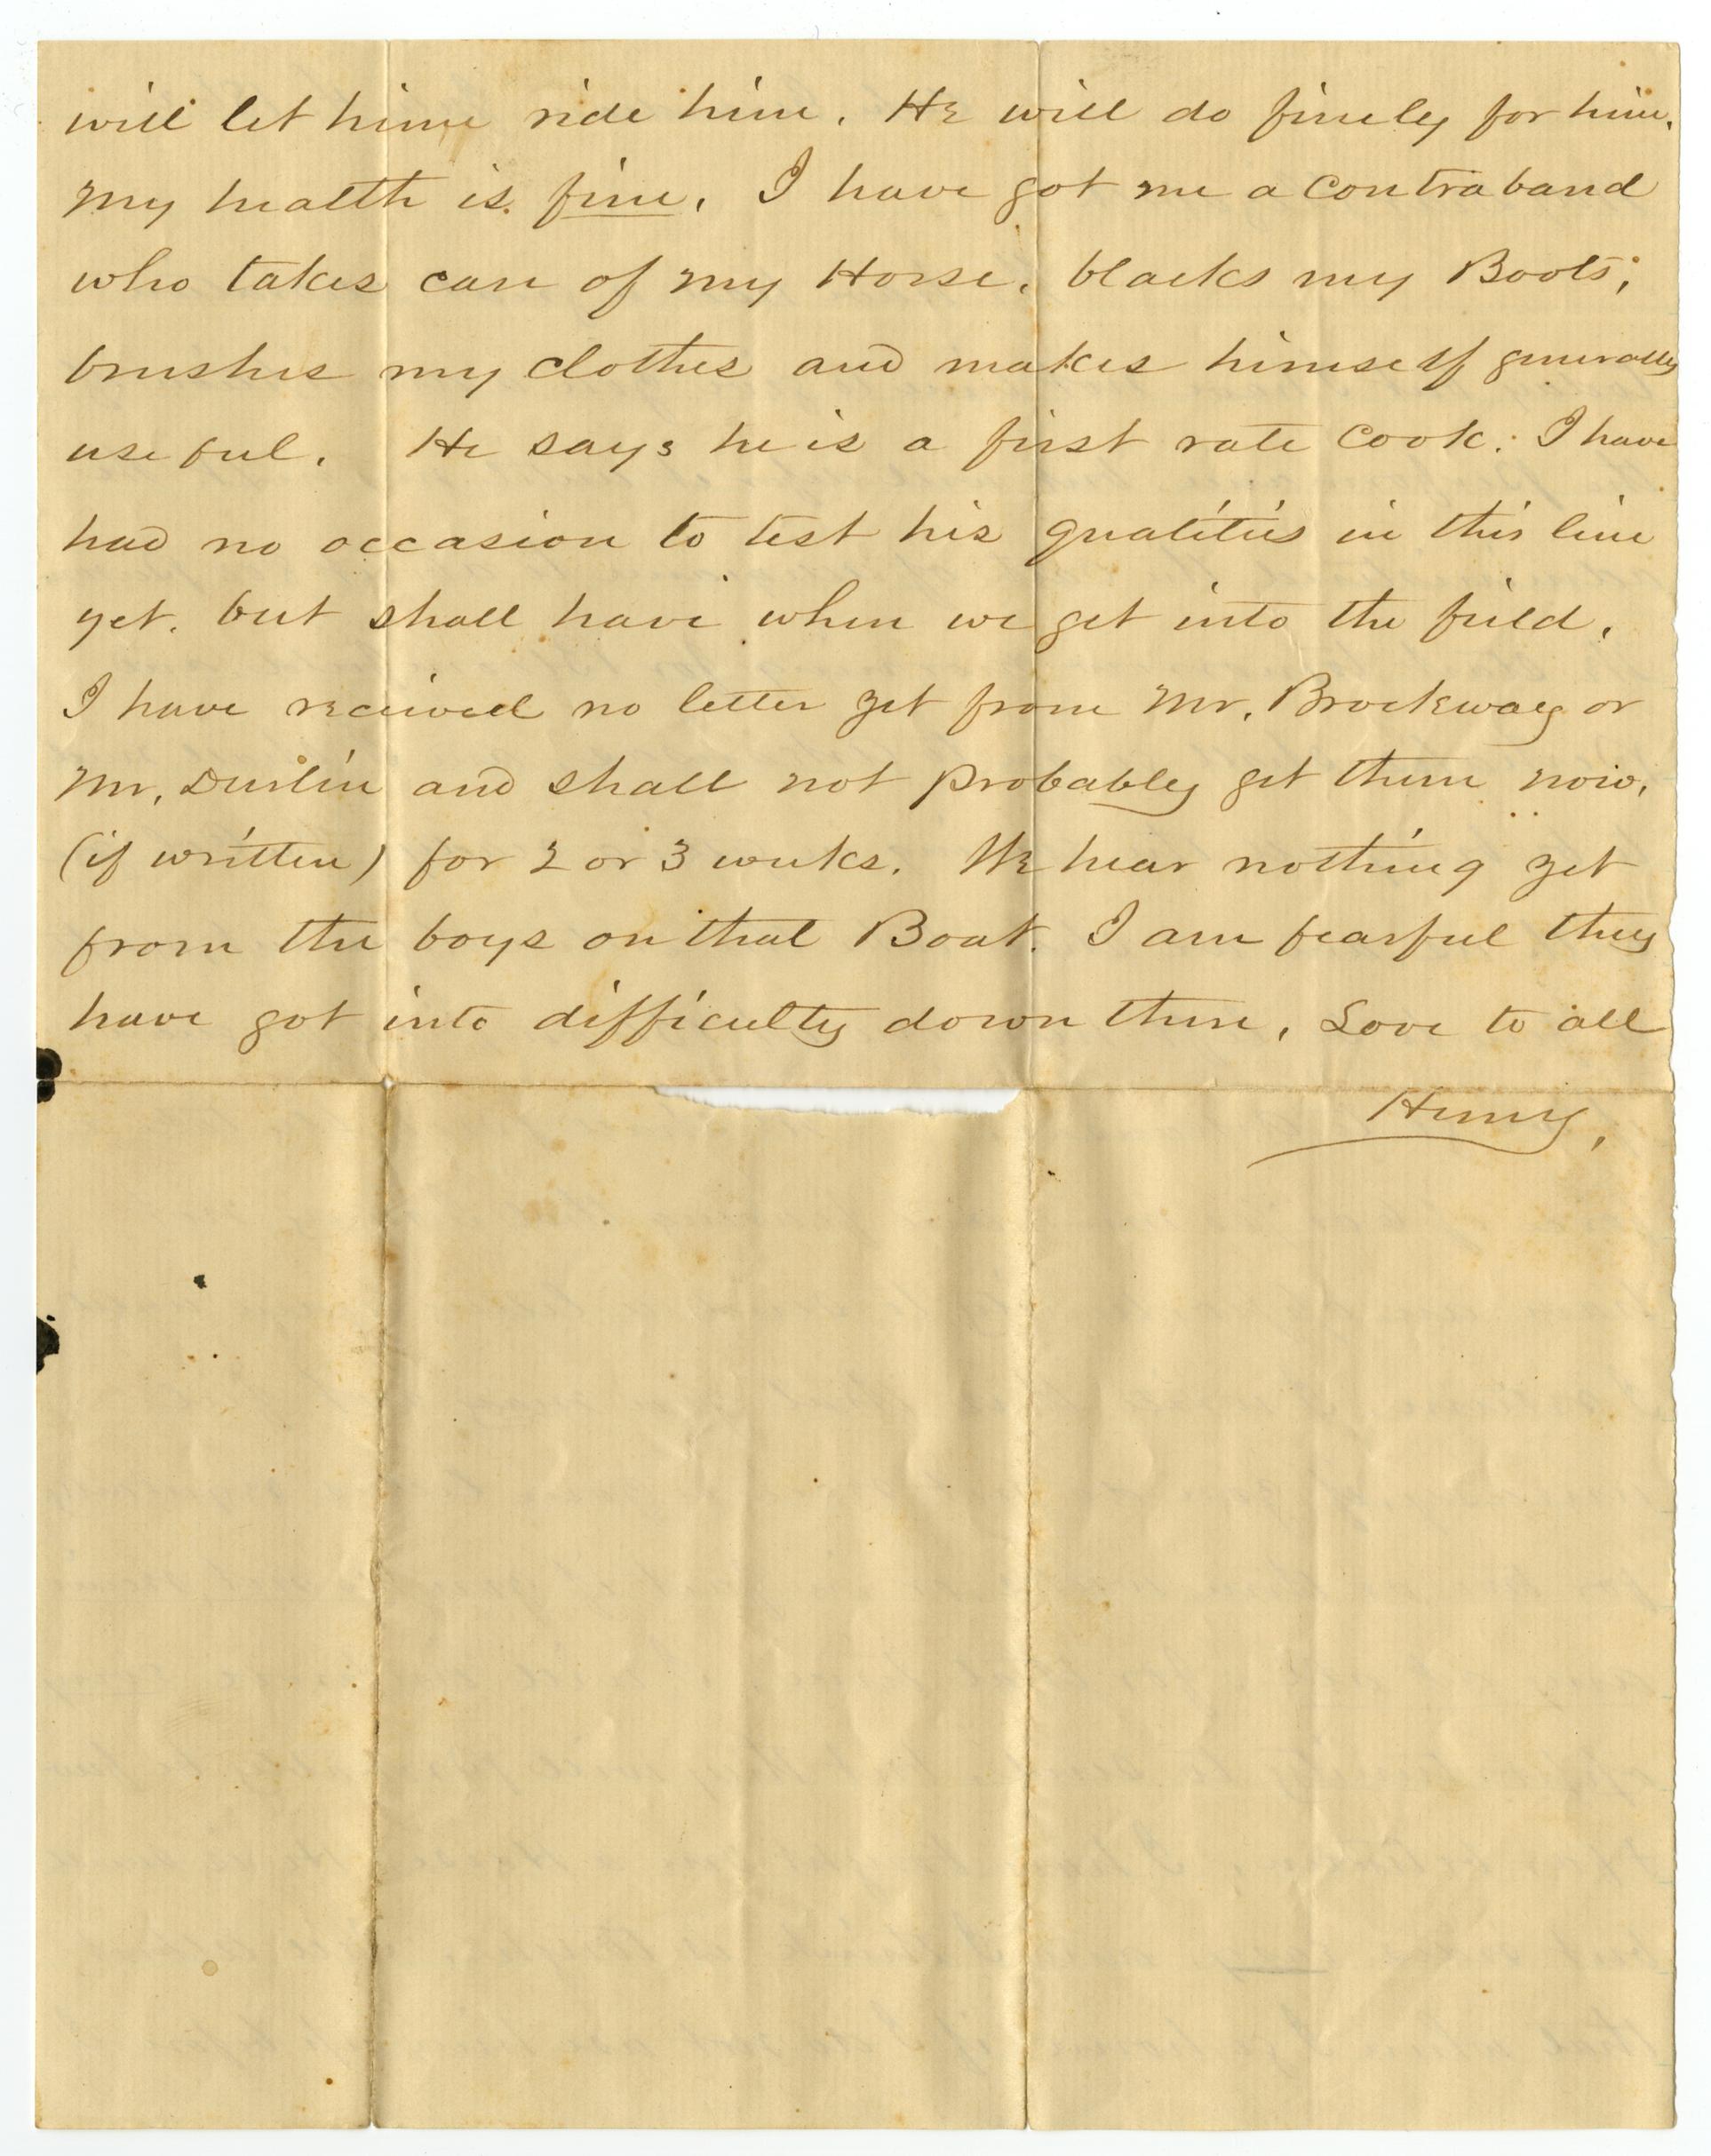 will let him ride him. He will do finely for him.
My health is fine. I have got me a contraband
who takes care of my Horse, blacks my Boots,
brushes my clothes and makes himself generally
useful. He says he is a first rate cook. I have
had no occasion to test his qualities in this line
yet, but shall have when we get into the field.
I have received no letter yet from Mr. Brockway or
Mr. Durlin and shall not probably get them now,
(if written) for 2 or 3 weeks. We hear nothing yet
from the boys on that Boat. I am fearful they
have got into difficulty down there. Love to all
Henry,